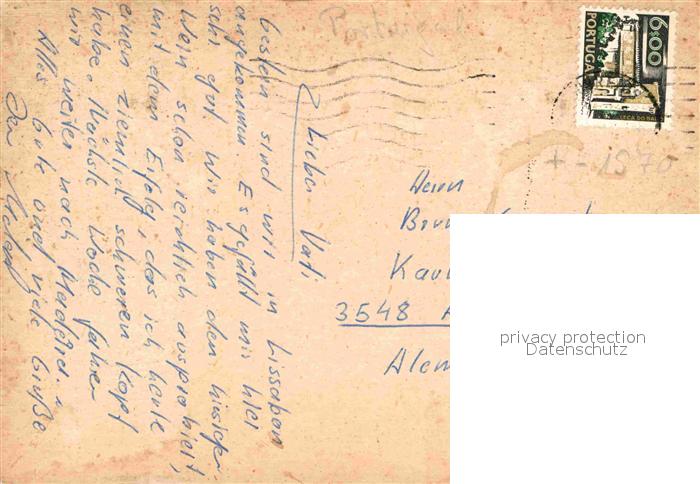 Portugal
6$00
PORTUGAL
LEÇA DO BAL
+ - 1970
Lieber Vati
Gestern sind wir in Lissabon
angekommen. Es gefällt mir hier
sehr gut. Wir haben den hiesigen
Wein schon reichlich ausprobiert,
mit dem Erfolg, das ich heute
einen ziemlich schweren Kopf
habe. Nächste Woche fahren
wir weiter nach Madrid.
Alles Gute und viele Grüße
Dein
Herrn
3548
Alem
privacy protection
Datenschutz